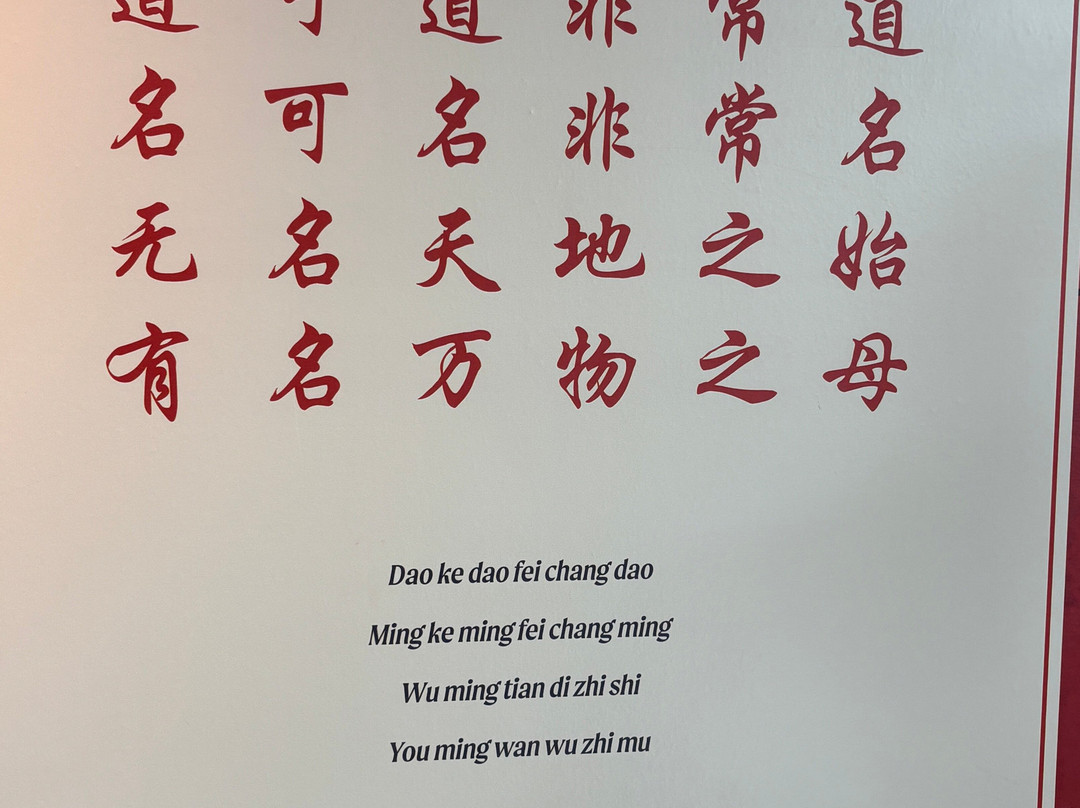 道可道非常道
名可名非常名
无名天地之始
有名万物之母
Dao ke dao fei chang dao
Ming ke ming fei chang ming
Wu ming tian di zhi shi
You ming wan wu zhi mu